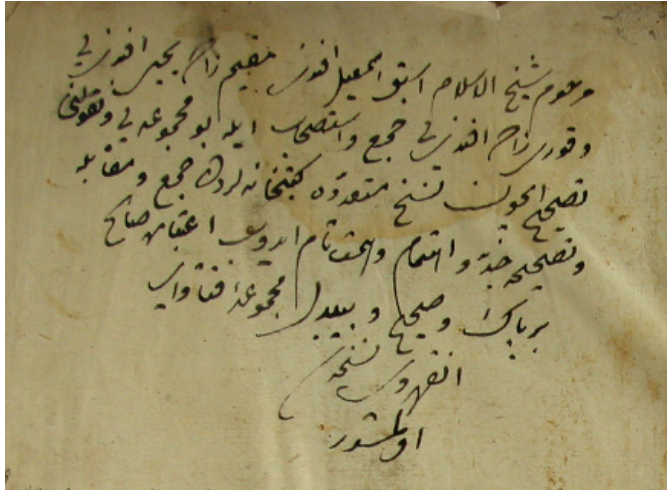 مرحوم شيخ الاسلام اسبق اسمعيل افندى مقيم زاده يحيى افندى يى
وقورى زاده افندى يى جمع واستصحاب ايله بو مجموعه يى ونقولنى
تصحيح ايچون نسخ متعدده كتبخانه لردن جمع و مقابله
وتصحيحه جد و اهتمام و دقت تام ايدوب اعتقاد صالح
بر پاك وصحيح و بيبدل مجموعه افتاوايى
انقروى نسخه
اولمشدر